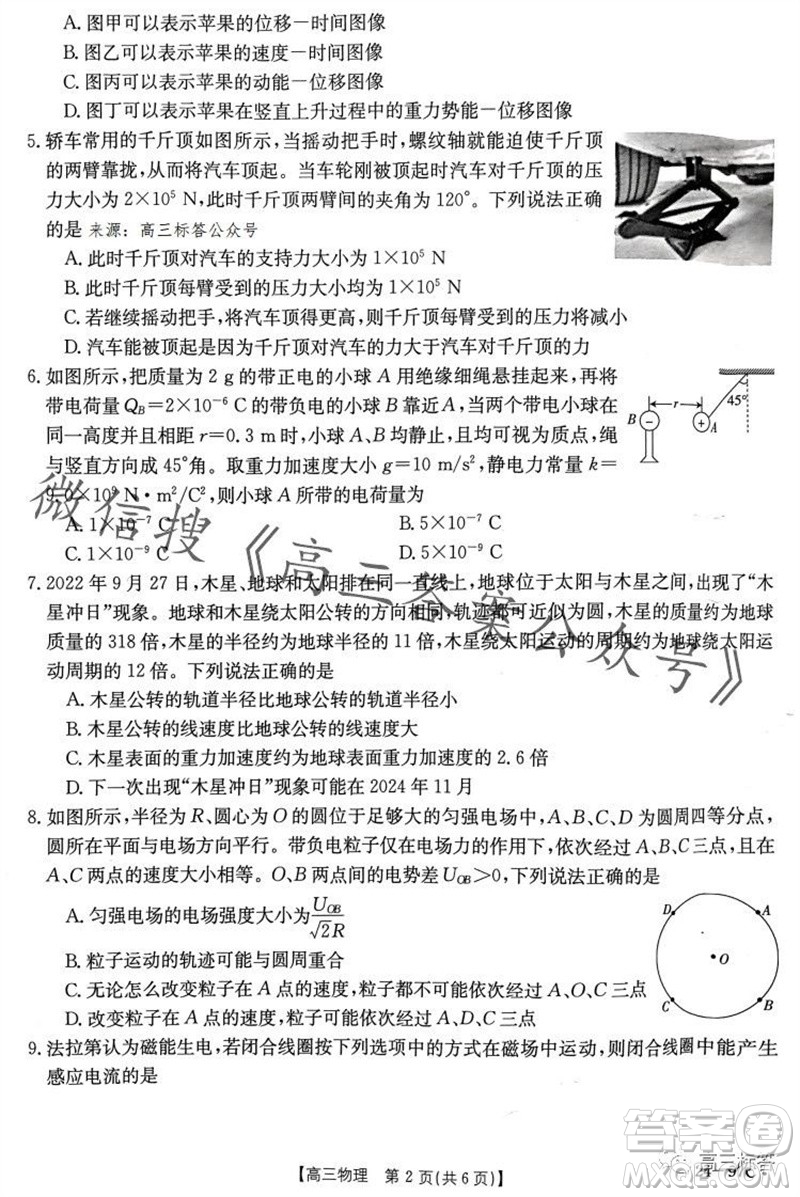 A. 图甲可以表示苹果的位移—时间图像
B. 图乙可以表示苹果的速度—时间图像
C. 图丙可以表示苹果的动能—位移图像
D. 图丁可以表示苹果在竖直上升过程中的重力势能—位移图像
5. 轿车常用的千斤顶如图所示,当摇动把手时,螺纹轴就能使千斤顶
的两臂靠拢,从而将汽车顶起。当车轮刚被顶起时汽车对千斤顶的压
力大小为 2×10⁵ N,此时千斤顶两臂间的夹角为 120°。下列说法正确
的是 来源: 高三标答公众号
A. 此时千斤顶对汽车的支持力大小为 1×10⁵ N
B. 此时千斤顶每臂受到的压力大小均为 1×10⁵ N
C. 若继续摇动把手,将汽车顶得更高,则千斤顶每臂受到的压力将减小
D. 汽车能被顶起是因为千斤顶对汽车的力大于汽车对千斤顶的力
6. 如图所示,把质量为 2 g 的带正电的小球 A 用绝缘细绳悬挂起来,再将
带电荷量 Q_B=2×10⁻⁶ C 的带负电的小球 B 靠近 A,当两个带电小球在
同一高度并且相距 r=0.3 m 时,小球 A、B 均静止,且均可视为点电荷,绳
与竖直方向成 45°角。取重力加速度大小 g=10 m/s²,静电力常量 k=
9.0×10⁹ N·m²/C²,则小球 A 所带的电荷量为
A. 1×10⁻⁷ C B. 5×10⁻⁷ C
C. 1×10⁻⁹ C D. 5×10⁻⁹ C
45°
B
r
A
7. 2022 年 9 月 27 日,木星、地球和太阳排在同一直线上,地球位于太阳与木星之间,出现了“木
星冲日”现象。地球和木星绕太阳公转的方向相同,轨迹都可近似为圆,木星的质量约为地球
质量的 318 倍,木星的半径约为地球半径的 11 倍,木星绕太阳运动的周期约为地球绕太阳运
动周期的 12 倍。下列说法正确的是
A. 木星公转的轨道半径比地球公转的轨道半径小
B. 木星公转的线速度比地球公转的线速度大
C. 木星表面的重力加速度约为地球表面的重力加速度的 2.6 倍
D. 下一次出现“木星冲日”现象可能在 2024 年 11 月
8. 如图所示,半径为 R、圆心为 O 的圆位于足够大的匀强电场中,A、B、C、D 为圆周四等分点,
圆所在平面与电场方向平行。带负电粒子仅在电场力的作用下运动,依次经过 A、B、C 三点,且在
A、C 两点的速度大小相等。O、B 两点间的电势差 U_OB>0,下列说法正确的是
A. 匀强电场的电场强度大小为 U_OB/(√2R)
B. 粒子运动的轨迹可能与圆周重合
C. 无论怎么改变粒子在 A 点的速度,粒子都不可能依次经过 A、O、C 三点
D. 改变粒子在 A 点的速度,粒子可能依次经过 A、O、C 三点
D
A
O
C
B
9. 法拉第认为磁能生电,若闭合线圈按下列选项中的方式在磁场中运动,则闭合线圈中能产生
感应电流的是
微信搜《高三答案公众号》
【高三物理 第 2 页(共 6 页)】
高三标答
答案卷
MXQE.COM